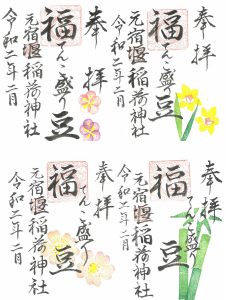 奉拝
福 てんこ盛り 豆
元宿堰稲荷神社
令和二年二月
奉拝
福 てんこ盛り 豆
元宿堰稲荷神社
令和二年二月
奉拝
福 てんこ盛り 豆
元宿堰稲荷神社
令和二年二月
奉拝
福 てんこ盛り 豆
元宿堰稲荷神社
令和二年二月